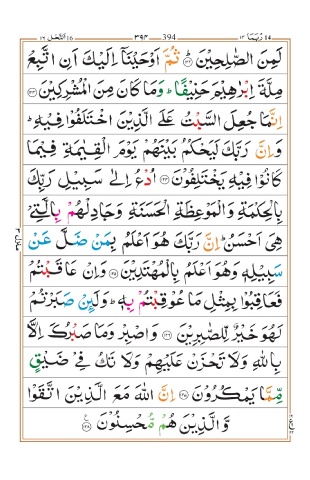 النحل ١٦ 394 ٣٩٤ ربما ١٤
لَمِنَ الصّٰلِحِیْنَ ﴿۱۲۲﴾ ثُمَّ اَوْحَیْنَاۤ اِلَیْكَ اَنِ اتَّبِعْ
مِلَّةَ اِبْرٰهِیْمَ حَنِیْفًا ؕ وَمَا كَانَ مِنَ الْمُشْرِكِیْنَ ﴿۱۲۳﴾
اِنَّمَا جُعِلَ السَّبْتُ عَلَی الَّذِیْنَ اخْتَلَفُوْا فِیْهِ ؕ
وَاِنَّ رَبَّكَ لَیَحْكُمُ بَیْنَهُمْ یَوْمَ الْقِیٰمَةِ فِیْمَا
كَانُوْا فِیْهِ یَخْتَلِفُوْنَ ﴿۱۲۴﴾ اُدْعُ اِلٰی سَبِیْلِ رَبِّكَ
بِالْحِكْمَةِ وَالْمَوْعِظَةِ الْحَسَنَةِ وَجَادِلْهُمْ بِالَّتِیْ
هِیَ اَحْسَنُ ؕ اِنَّ رَبَّكَ هُوَ اَعْلَمُ بِمَنْ ضَلَّ عَنْ
سَبِیْلِهٖ وَهُوَ اَعْلَمُ بِالْمُهْتَدِیْنَ ﴿۱۲۵﴾ وَاِنْ عَاقَبْتُمْ
فَعَاقِبُوْا بِمِثْلِ مَا عُوْقِبْتُمْ بِهٖ ؕ وَلَىِٕنْ صَبَرْتُمْ
لَهُوَ خَیْرٌ لِّلصّٰبِرِیْنَ ﴿۱۲۶﴾ وَاصْبِرْ وَمَا صَبْرُكَ اِلَّا
بِاللّٰهِ وَلَا تَحْزَنْ عَلَیْهِمْ وَلَا تَكُ فِیْ ضَیْقٍ
مِّمَّا یَمْكُرُوْنَ ﴿۱۲۷﴾ اِنَّ اللّٰهَ مَعَ الَّذِیْنَ اتَّقَوْا
وَّالَّذِیْنَ هُمْ مُّحْسِنُوْنَ ﴿۱۲۸﴾